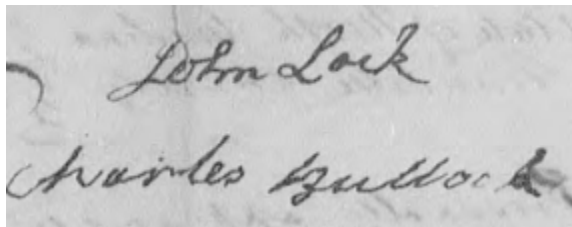 John Lock
Charles Bullock